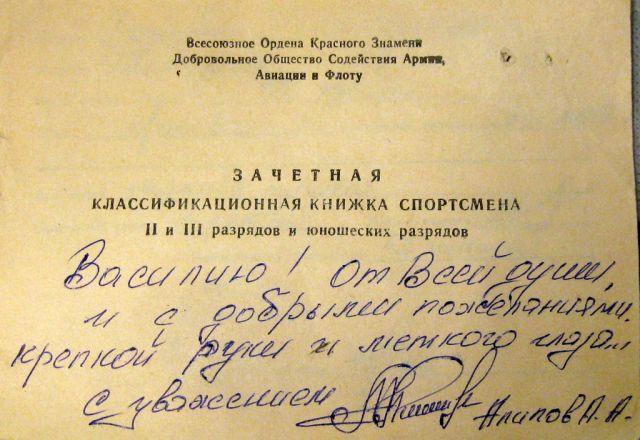 Всесоюзное Ордена Красного Знамени
Добровольное Общество Содействия Армии,
Авиации и Флоту
ЗАЧЕТНАЯ
КЛАССИФИКАЦИОННАЯ КНИЖКА СПОРТСМЕНА
II и III разрядов и юношеских разрядов
Василию! От Всей души,
и с добрыми пожеланиями
крепкой руки и меткого глаза
с уважением Алипов А.А.